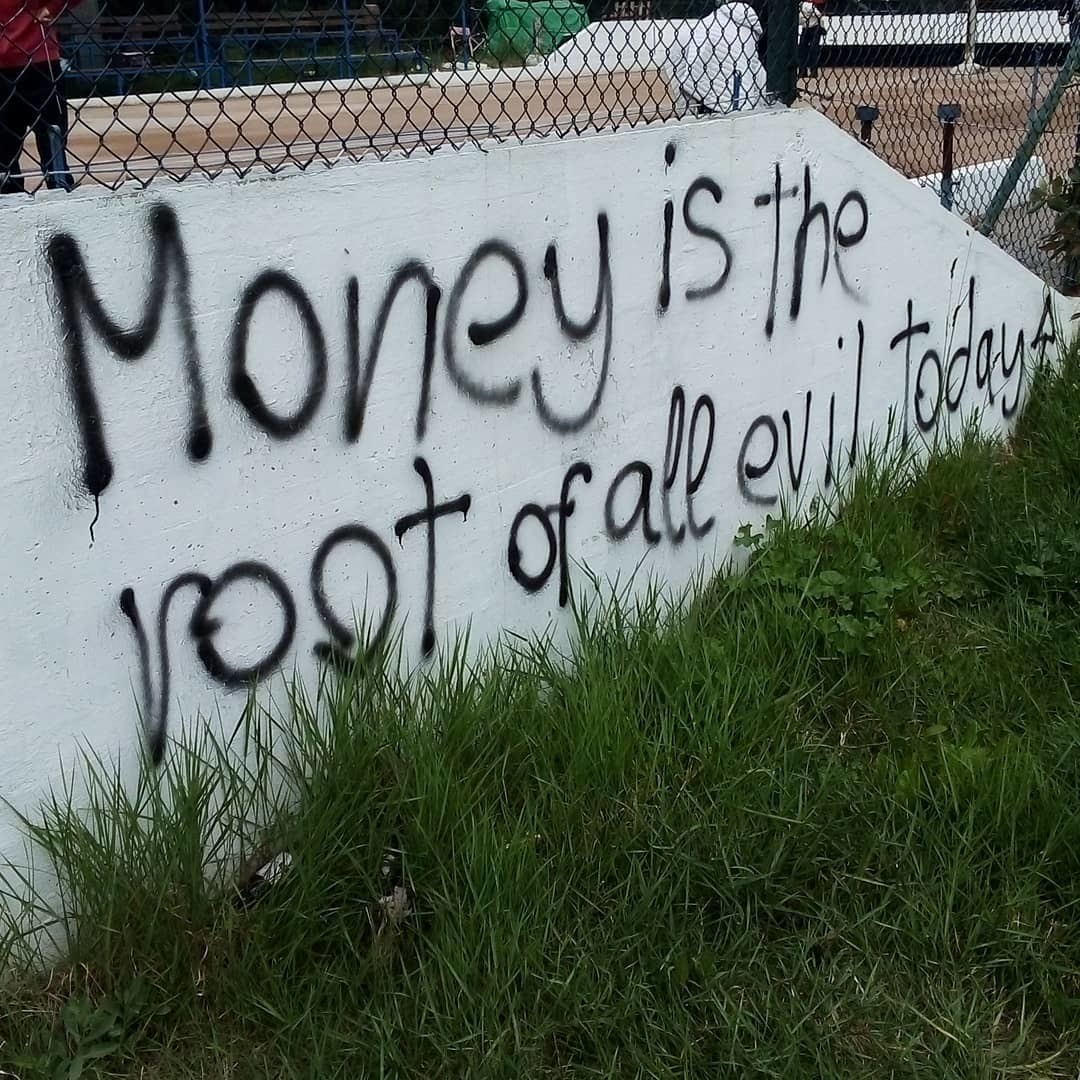 Money is the
root of all evil today